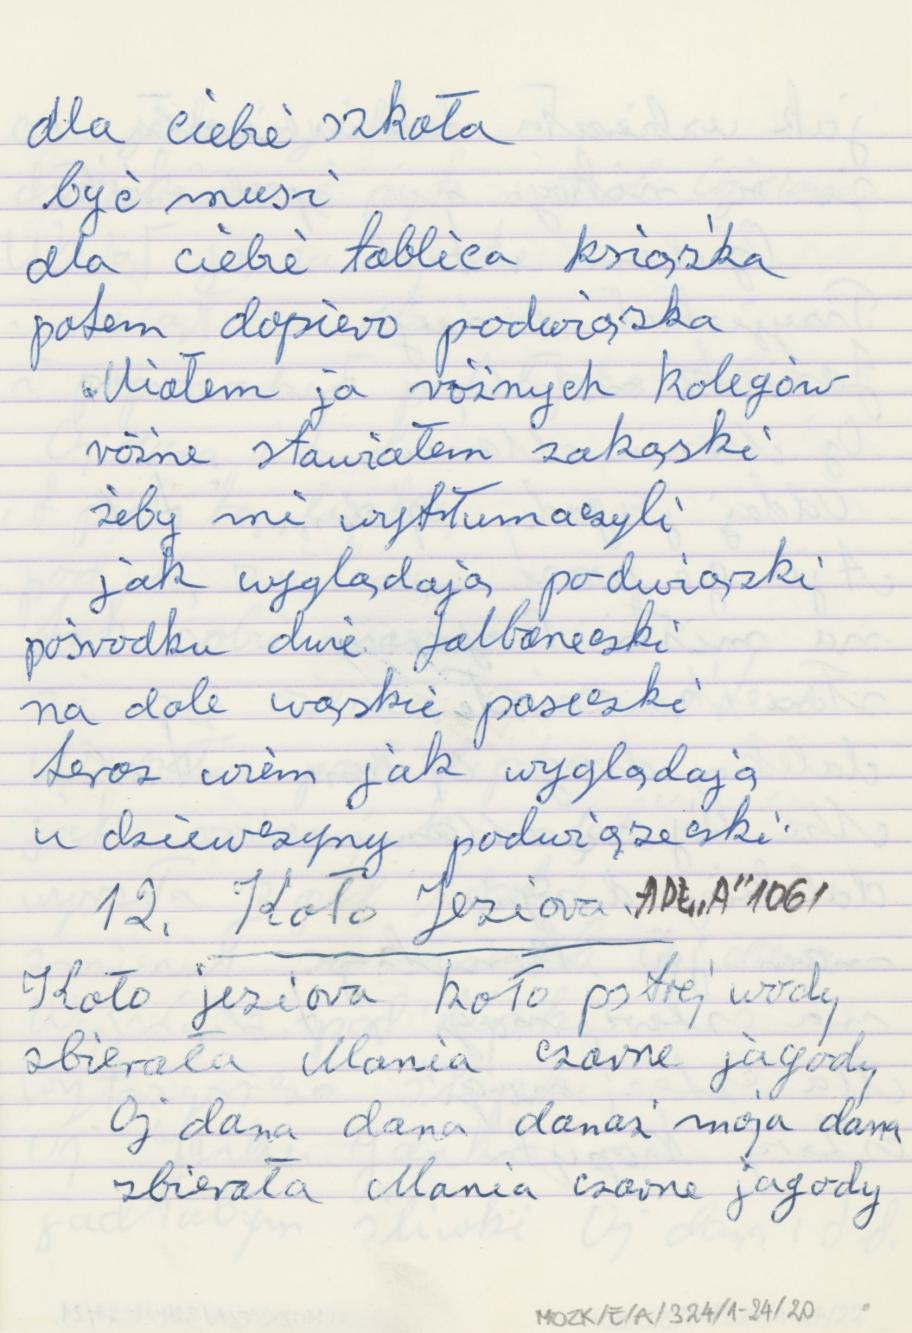 dla ciebie szkoła
być musi
dla ciebie tablica książka
potem dopiero podwiązka
Miałem ja różnych kolegów
różne stawiałem zakąski
żeby mi wytłumaczyli
jak wyglądają podwiązki
pośrodku dwie falbaneczki
na dole wąskie paseczki
teraz wiem jak wyglądają
u dziewczyny podwiązeczki.
12. Koło Jeziora. APŁ„A” 1061
Koło jeziora koło pstrej wody
zbierała Mania czarne jagody
Oj dana dana danaż moja dana
zbierała Mania czarne jagody
MOZK/E/A/324/1-24/20